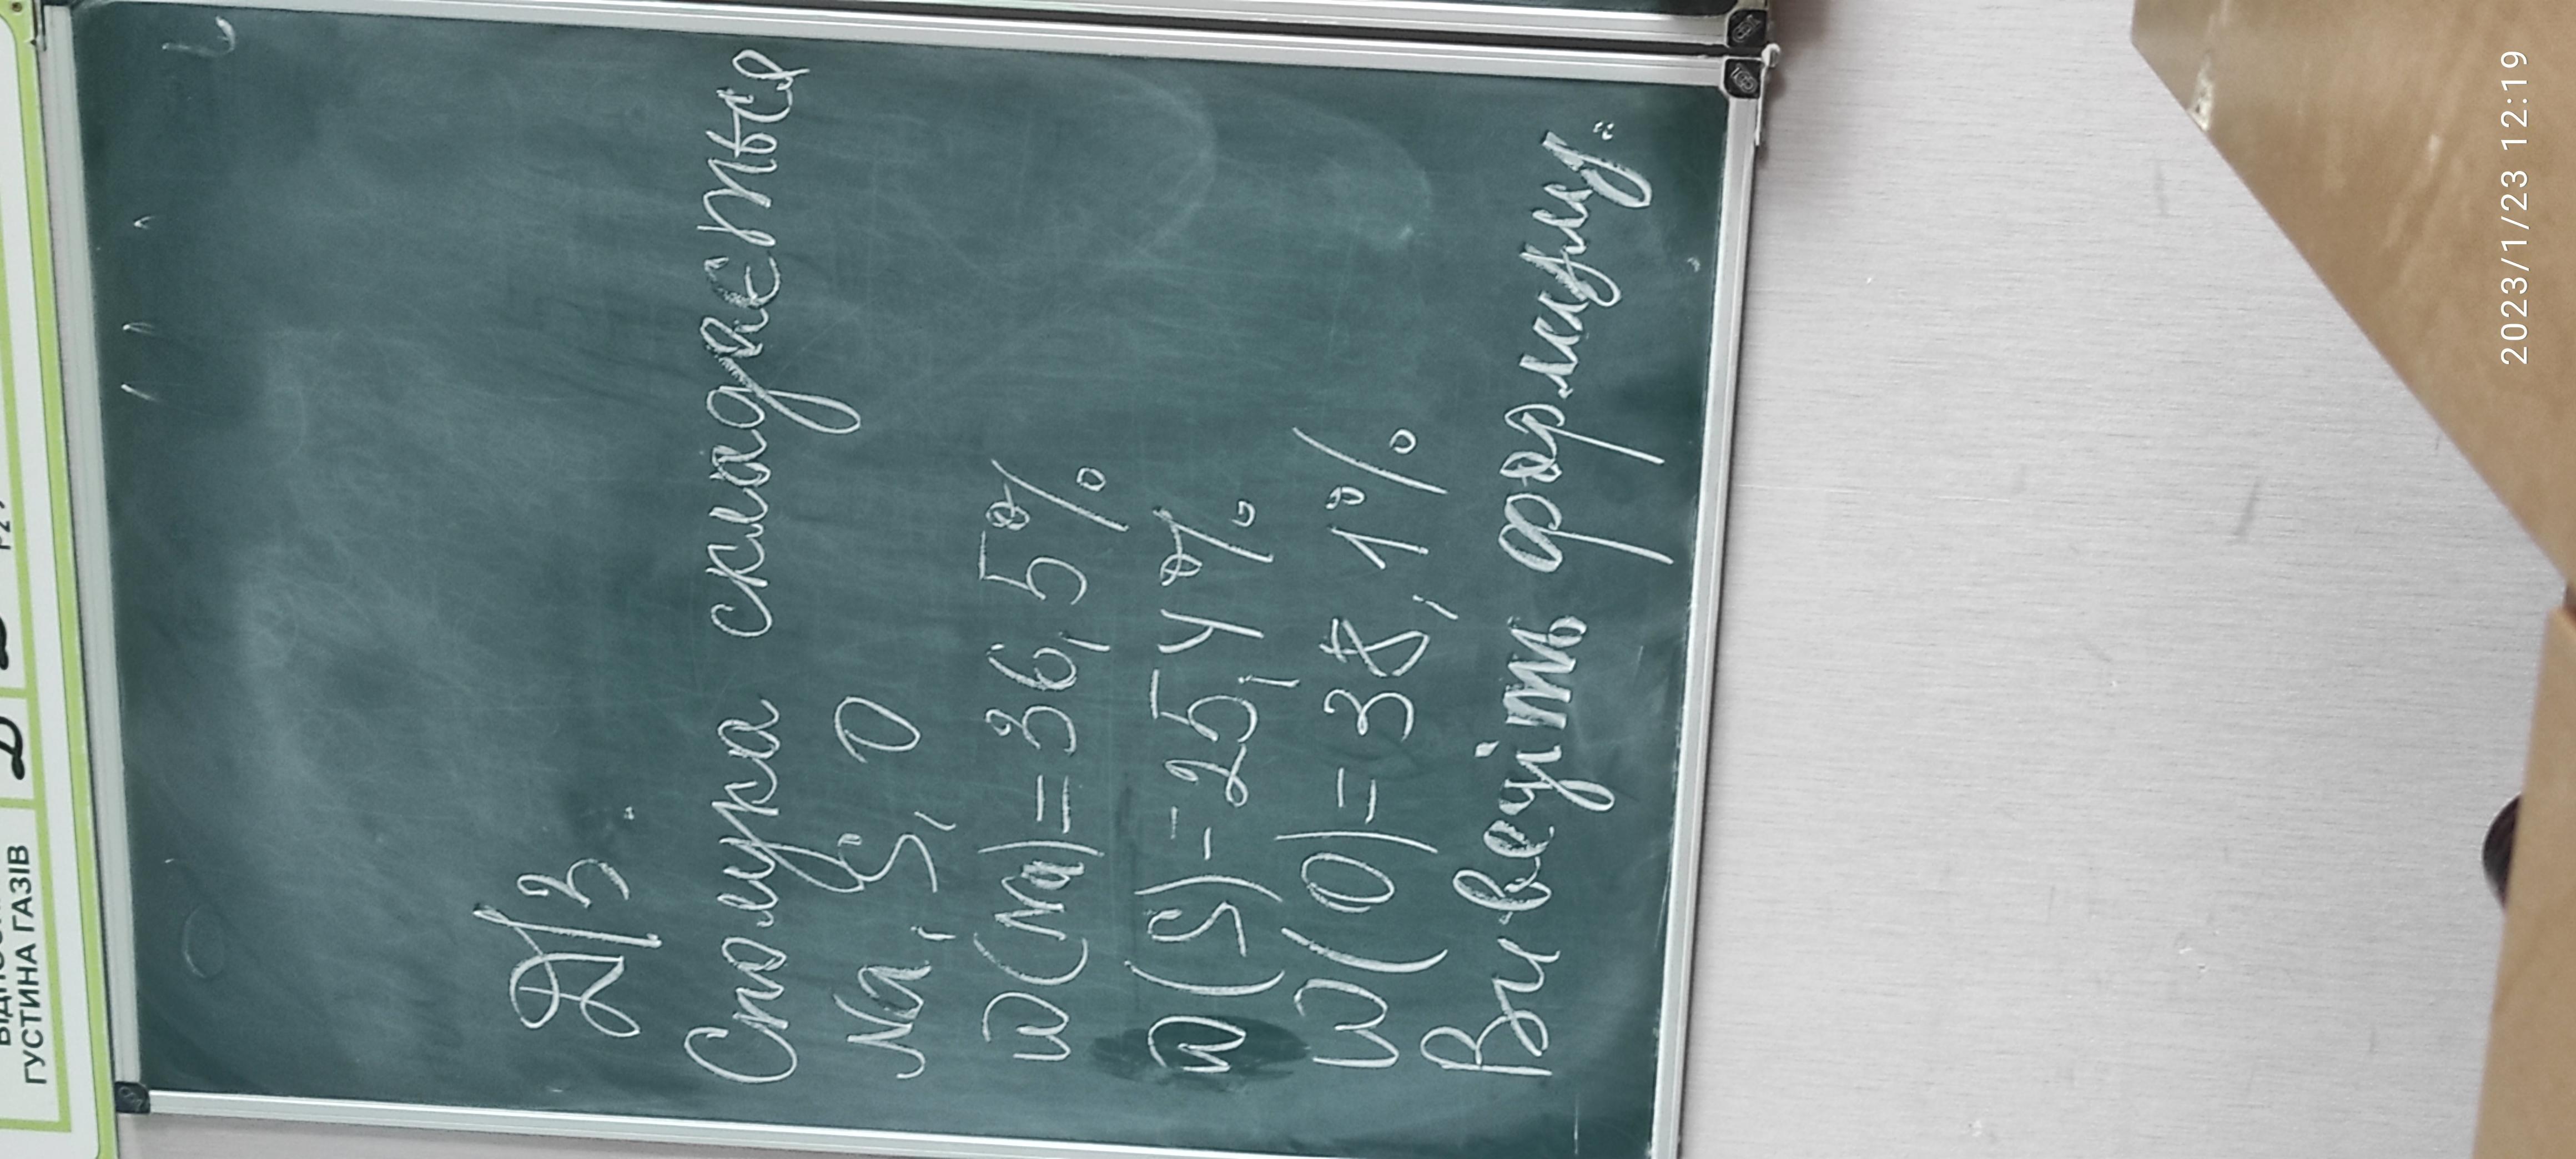 ГУСТИНА ГАЗІВ
Д/З
Сполука складається
Na, S, O
W(Na)=36,5%
W(S)=25,4%
W(O)=38,1%
Виведіть формулу.
2023/1/23 12:19